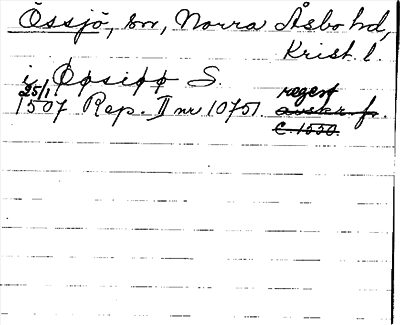 Össjö, sn, Norra Åsbo hd,
Krist. l.
i Øøsiøø S.
25/1 regest
1507 Rep. II nr 10751. avskr. f.
C. 1550.